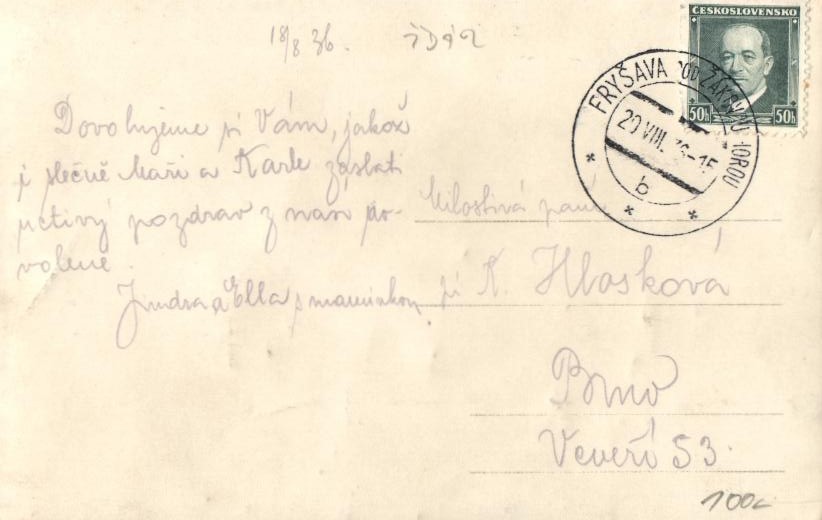 18/8 36. ŽĎÁR
ČESKOSLOVENSKO
50h 50h
FRYŠAVA POD ŽÁKOVOU HOROU
20.VIII.36-15
b
Dovolujeme si Vám, jakož
i slečně Máři a Karle zaslati
uctivý pozdrav z naší do-
volené.
Jindra a Ella s maminkou.
Milostivá paní
pí K. Hlosková
Brno
Veveří 53.
100,-